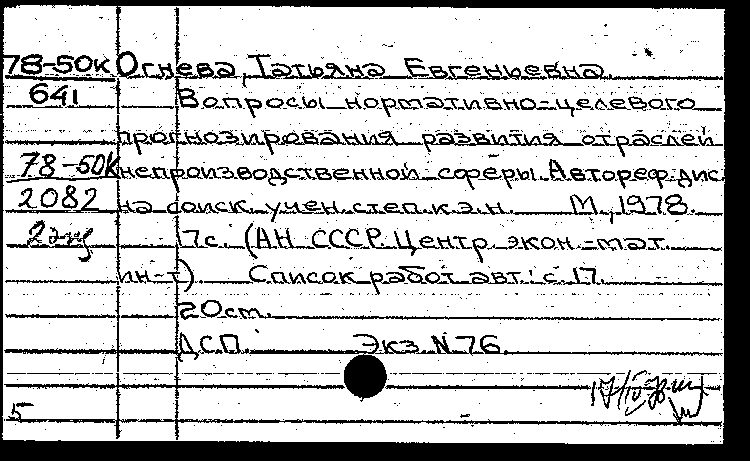 78-50к Огнева, Татьяна Евгеньевна.
641 Вопросы нормативно-целевого
прогнозирования развития отраслей
78-50к непроизводственной сферы. Автореф. дис.
2082 на соиск. учен. степ. к.э.н. М., 1978.
2 экз 17с. (АН СССР. Центр. экон.-мат.
ин-т). Список работ авт.: с. 17.
20ст.
ДСП. Экз. N 76.
5